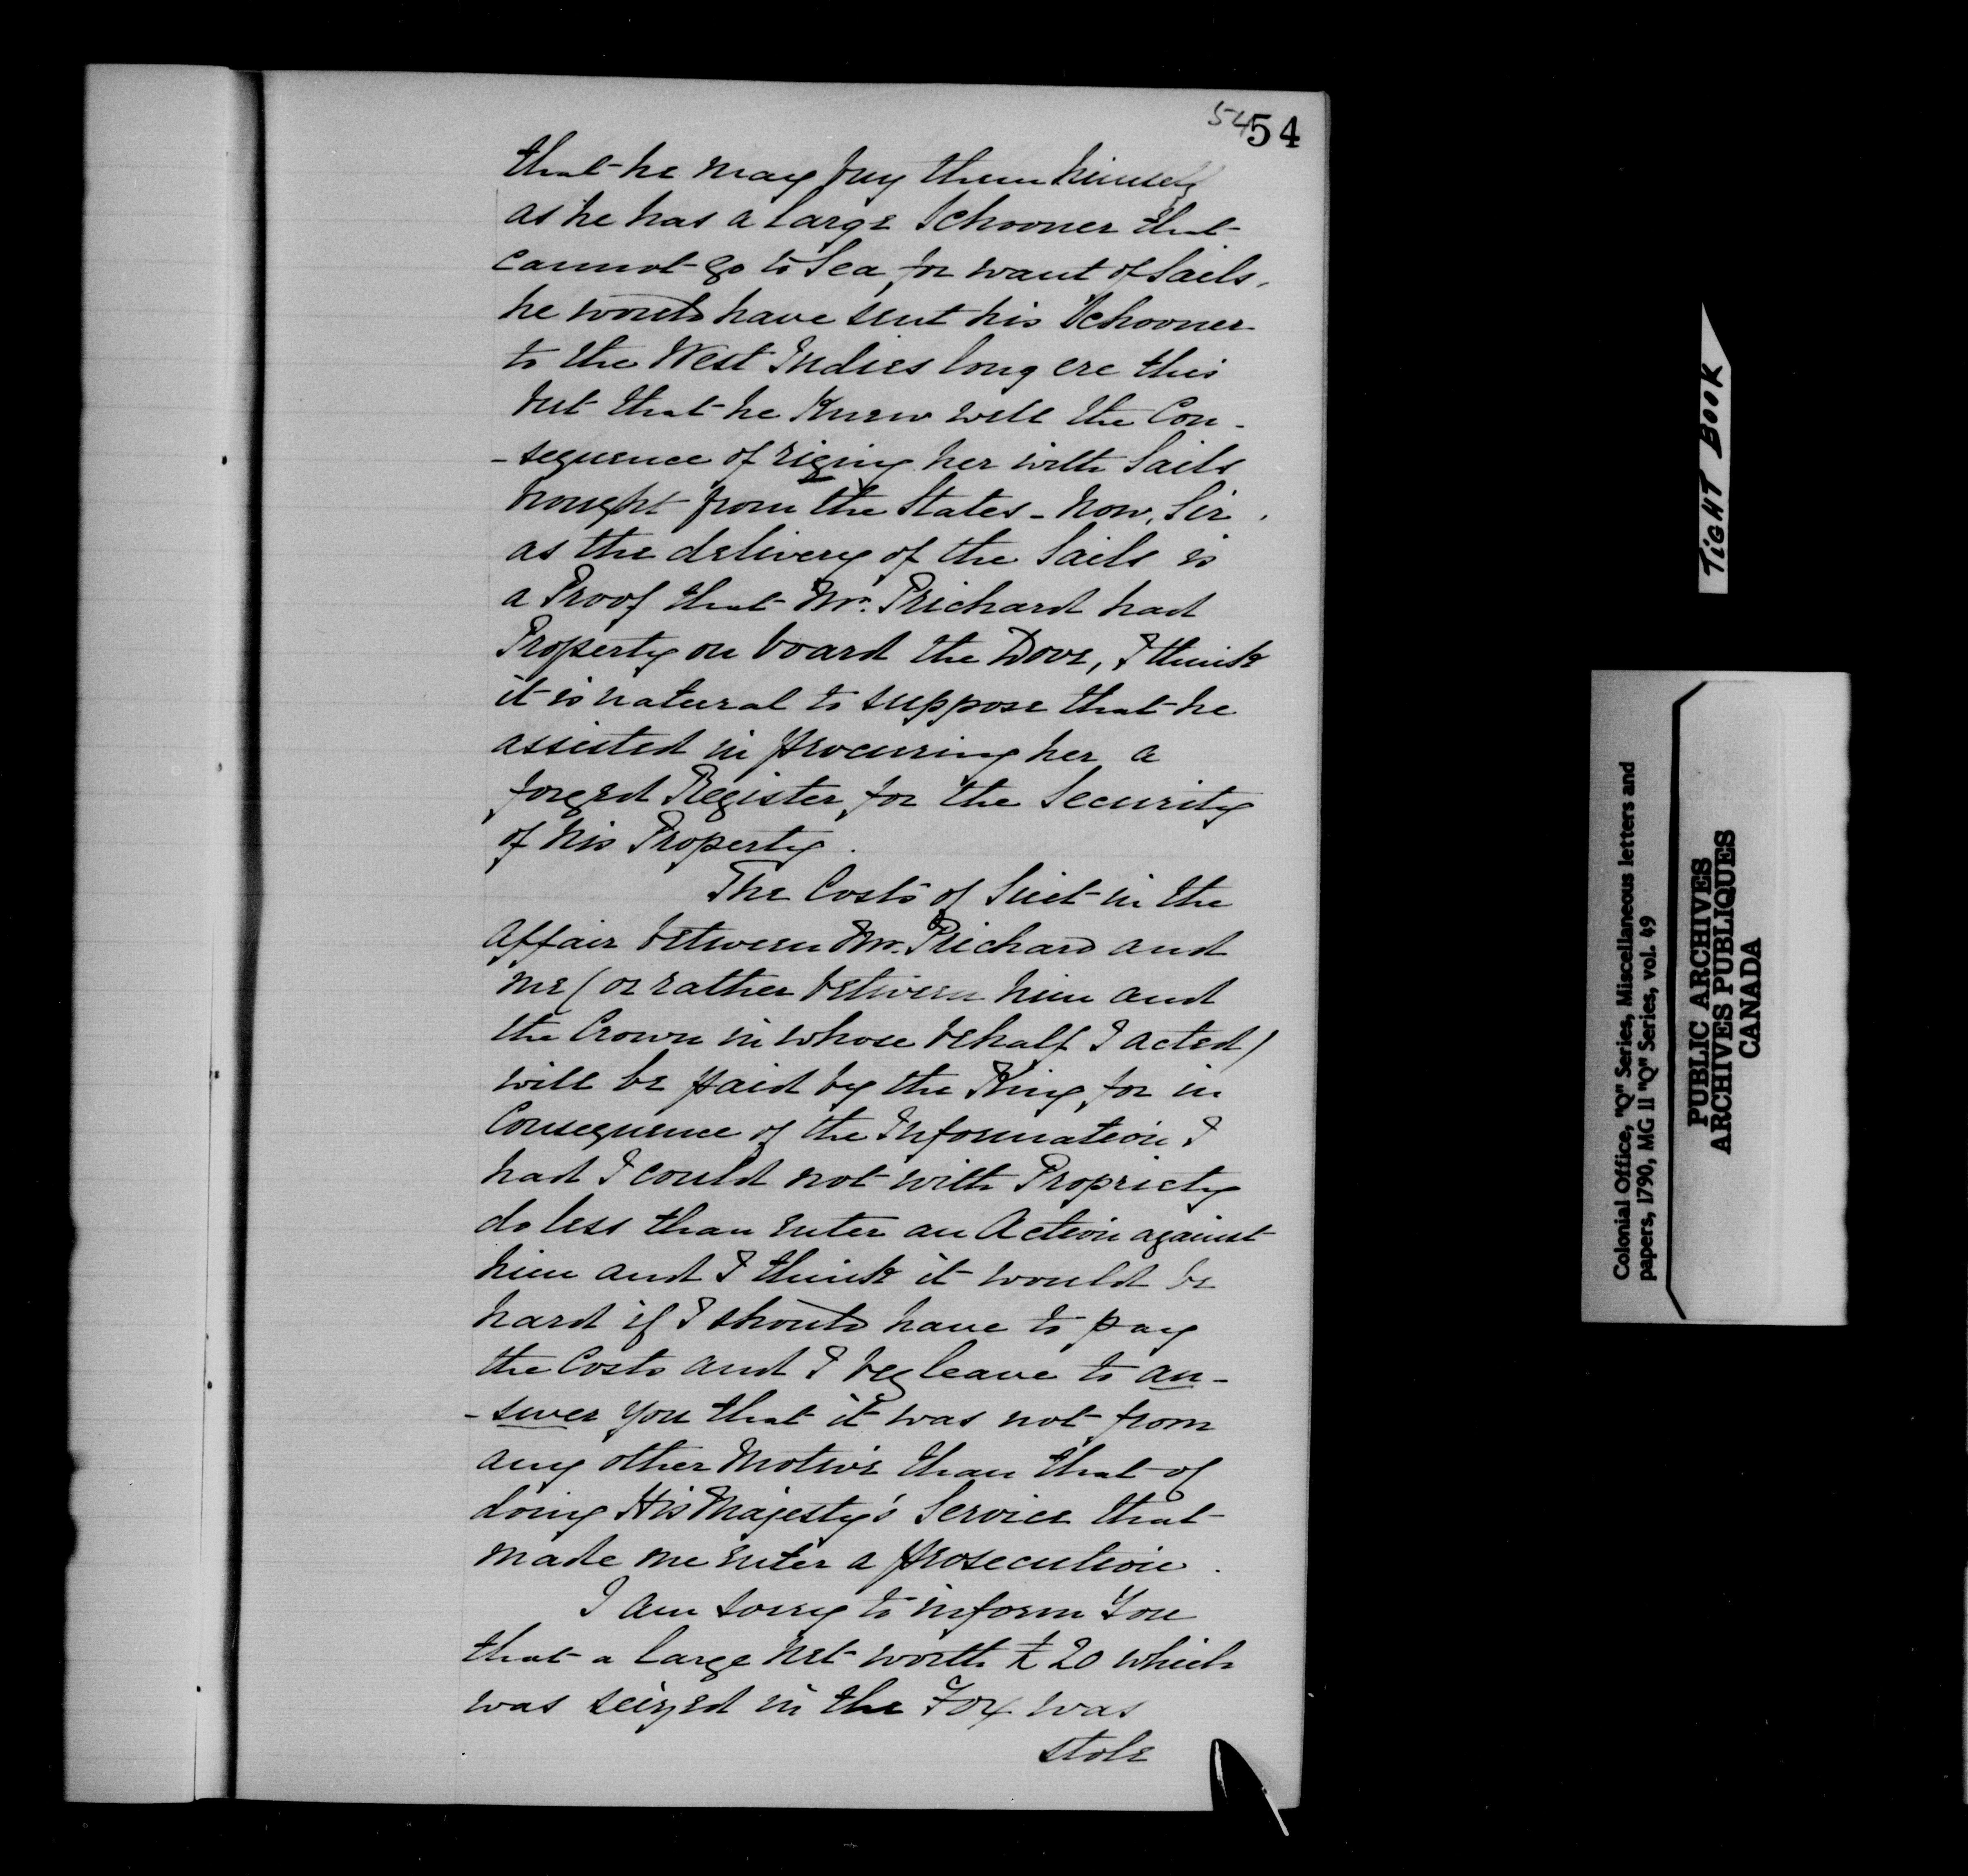 54 54
that he may buy them himself
as he has a large Schooner that
cannot go to Sea for want of Sails,
he would have sent his Schooner
to the West Indies long ere this
but that he Knew well the Con-
-sequence of riging her with Sails
bought from the States - Now, Sir,
as the delivery of the Sails is
a Proof that Mr. Prichard had
Property on board the Dove, I think
it is natural to suppose that he
assisted in procuring her a
forged Register for the Security
of his Property.
The Costs of Suit in the
affair between Mr. Prichard and
me (or rather between him and
the Crown in whose behalf I acted)
will be paid by the King for in
Consequence of the Information I
had I could not with Propriety
do less than enter an Action against
him and I think it would be
hard if I should have to pay
the Costs and I beg leave to an-
-swer you that it was not from
any other Motive than that of
doing His Majesty's Service that
made me enter a prosecution.
I am sorry to inform You
that a large net worth £20 which
was seized in the Fox was
stole
TIGHT BOOK
Colonial Office, "Q" Series, Miscellaneous letters and
papers, 1790, MG 11 "Q" Series, vol. 49
PUBLIC ARCHIVES
ARCHIVES PUBLIQUES
CANADA